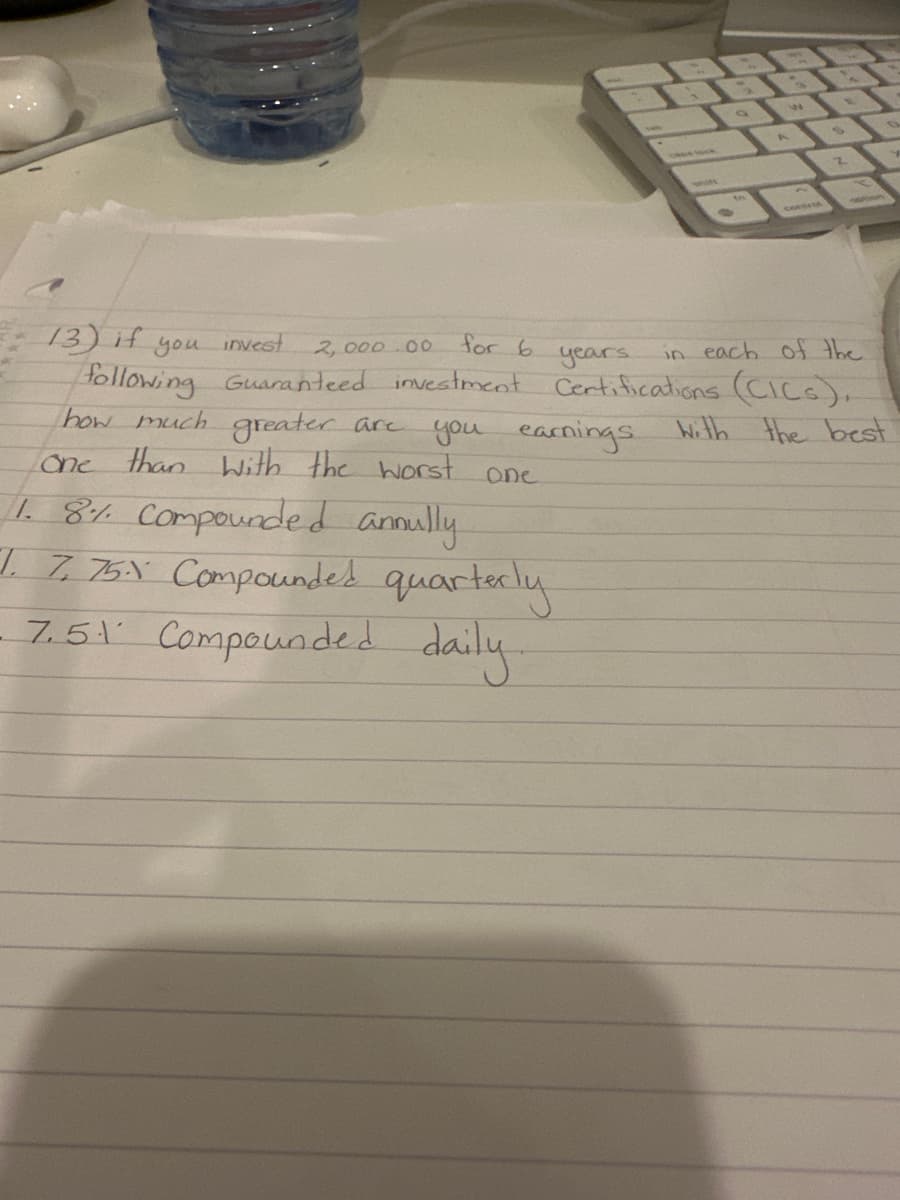 13) if you invest 2,000.00 for 6 years in each of the
following Guaranteed investment Certifications (CICs),
how much greater are you earnings with the best
one than with the worst one
1. 8% Compounded annully
1. 7,75% Compounded quarterly
7.5% Compounded daily.
Q W
A S
Z
fn control option